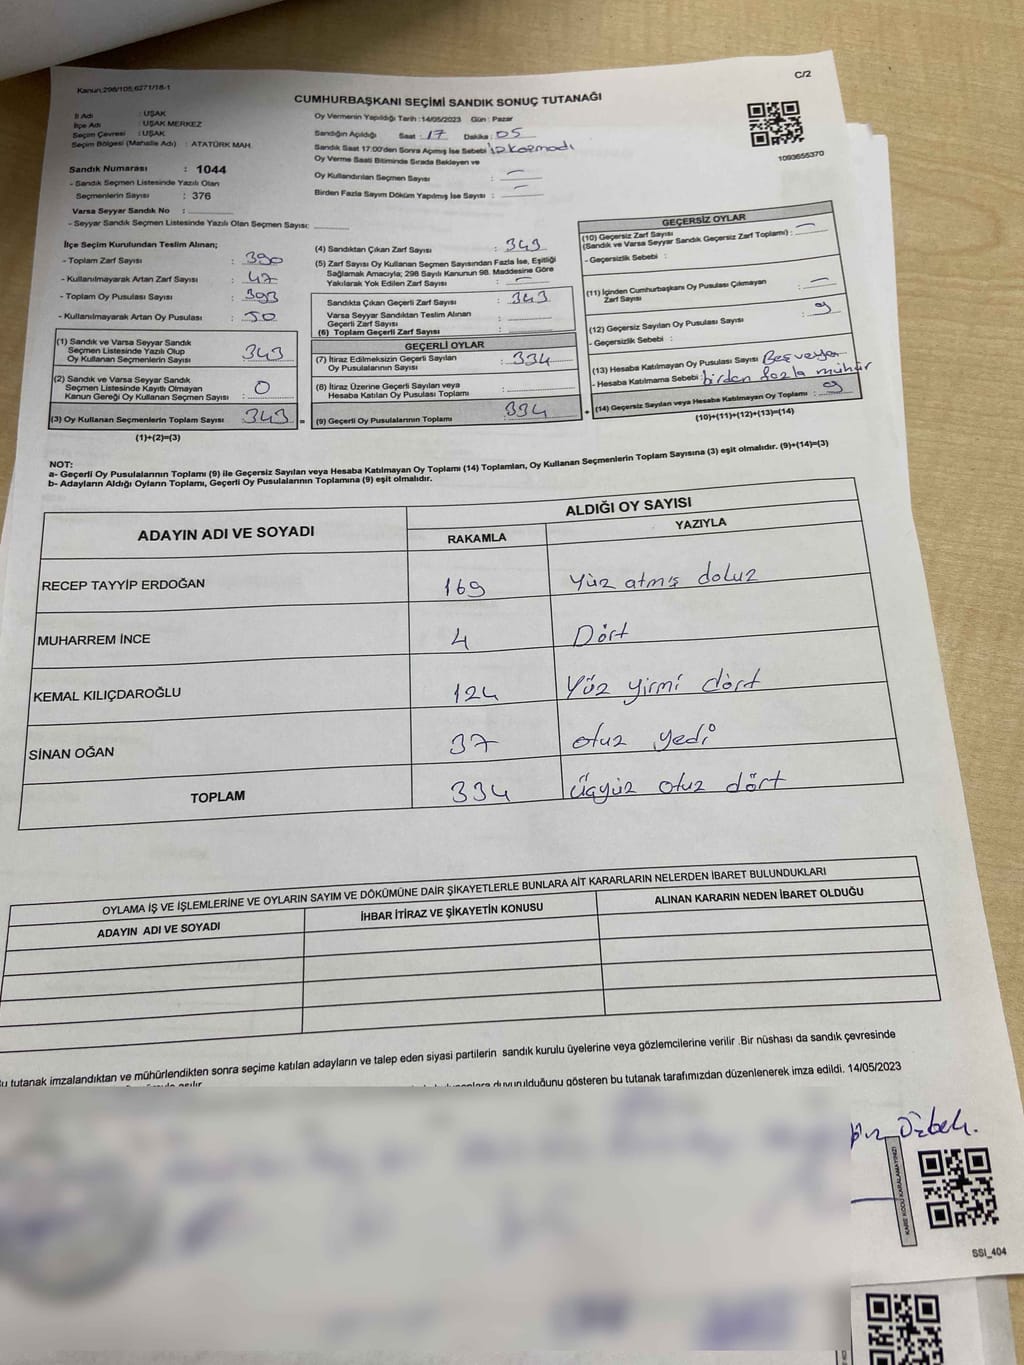 C/2
Kanun,298/105,6271/18-1
CUMHURBAŞKANI SEÇİMİ SANDIK SONUÇ TUTANAĞI
İl Adı : UŞAK
İlçe Adı : UŞAK MERKEZ
Seçim Çevresi : UŞAK
Seçim Bölgesi (Mahalle Adı) : ATATÜRK MAH.
Sandık Numarası : 1044
- Sandık Seçmen Listesinde Yazılı Olan
Seçmenlerin Sayısı : 376
Varsa Seyyar Sandık No :
- Seyyar Sandık Seçmen Listesinde Yazılı Olan Seçmen Sayısı:
Oy Vermenin Yapıldığı Tarih :14/05/2023 Gün : Pazar
Sandığın Açıldığı Saat : 17 Dakika : 05
Sandık Saat 17:00'den Sonra Açımış İse Sebebi :
Oy Verme Saati Bitiminde Sırada Bekleyen ve
Oy Kullandırılan Seçmen Sayısı : —
Birden Fazla Sayım Döküm Yapılmış İse Sayısı : —
1093655370
İlçe Seçim Kurulundan Teslim Alınan;
- Toplam Zarf Sayısı : 390
- Kullanılmayarak Artan Zarf Sayısı : 47
- Toplam Oy Pusulası Sayısı : 393
- Kullanılmayarak Artan Oy Pusulası : 50
(1) Sandık ve Varsa Seyyar Sandık
Seçmen Listesinde Yazılı Olup
Oy Kullanan Seçmenlerin Sayısı : 343
(2) Sandık ve Varsa Seyyar Sandık
Seçmen Listesinde Kayıtlı Olmayan
Kanun Gereği Oy Kullanan Seçmen Sayısı : 0
(3) Oy Kullanan Seçmenlerin Toplam Sayısı : 343 =
(1)+(2)=(3)
(4) Sandıktan Çıkan Zarf Sayısı : 343
(5) Zarf Sayısı Oy Kullanan Seçmen Sayısından Fazla İse, Eşitliği
Sağlamak Amacıyla; 298 Sayılı Kanunun 98. Maddesine Göre
Yakılarak Yok Edilen Zarf Sayısı : —
Sandıkta Çıkan Geçerli Zarf Sayısı : 343
Varsa Seyyar Sandıktan Teslim Alınan
Geçerli Zarf Sayısı :
(6) Toplam Geçerli Zarf Sayısı :
GEÇERLİ OYLAR
(7) İtiraz Edilmeksizin Geçerli Sayılan
Oy Pusulasının Sayısı : 334
(8) İtiraz Üzerine Geçerli Sayılan veya
Hesaba Katılan Oy Pusulası Toplamı :
(9) Geçerli Oy Pusulalarının Toplamı : 334 +
GEÇERSİZ OYLAR
(10) Geçersiz Zarf Sayısı
(Sandık ve Varsa Seyyar Sandık Geçersiz Zarf Toplamı) : —
- Geçersizlik Sebebi :
(11) İçinden Cumhurbaşkanı Oy Pusulası Çıkmayan
Zarf Sayısı : —
(12) Geçersiz Sayılan Oy Pusulası Sayısı : 9
- Geçersizlik Sebebi :
(13) Hesaba Katılmayan Oy Pusulası Sayısı :
- Hesaba Katılmama Sebebi : birden fazla mühür
(14) Geçersiz Sayılan veya Hesaba Katılmayan Oy Toplamı : 9
(10)+(11)+(12)+(13)=(14)
NOT:
a- Geçerli Oy Pusulalarının Toplamı (9) ile Geçersiz Sayılan veya Hesaba Katılmayan Oy Toplamı (14) Toplamları, Oy Kullanan Seçmenlerin Toplam Sayısına (3) eşit olmalıdır. (9)+(14)=(3)
b- Adayların Aldığı Oyların Toplamı, Geçerli Oy Pusulalarının Toplamına (9) eşit olmalıdır.
ADAYIN ADI VE SOYADI
ALDIĞI OY SAYISI
RAKAMLA YAZIYLA
RECEP TAYYİP ERDOĞAN 169 Yüz atmış doluz
MUHARREM İNCE 4 Dört
KEMAL KILIÇDAROĞLU 124 Yüz yirmi dört
SİNAN OĞAN 37 otuz yedi
TOPLAM 334 Üçyüz otuz dört
OYLAMA İŞ VE İŞLEMLERİNE VE OYLARIN SAYIM VE DÖKÜMÜNE DAİR ŞİKAYETLERLE BUNLARA AİT KARARLARIN NELERDEN İBARET BULUNDUKLARI
ADAYIN ADI VE SOYADI İHBAR İTİRAZ VE ŞİKAYETİN KONUSU ALINAN KARARIN NEDEN İBARET OLDUĞU
tutanak imzalandıktan ve mühürlendikten sonra seçime katılan adayların ve talep eden siyasi partilerin sandık kurulu üyelerine veya gözlemcilerine verilir .Bir nüshası da sandık çevresinde
duyurulduğunu gösteren bu tutanak tarafımızdan düzenlenerek imza edildi. 14/05/2023
Özbek.
KARE KODU KARALAMAYINIZ!
SSI_404